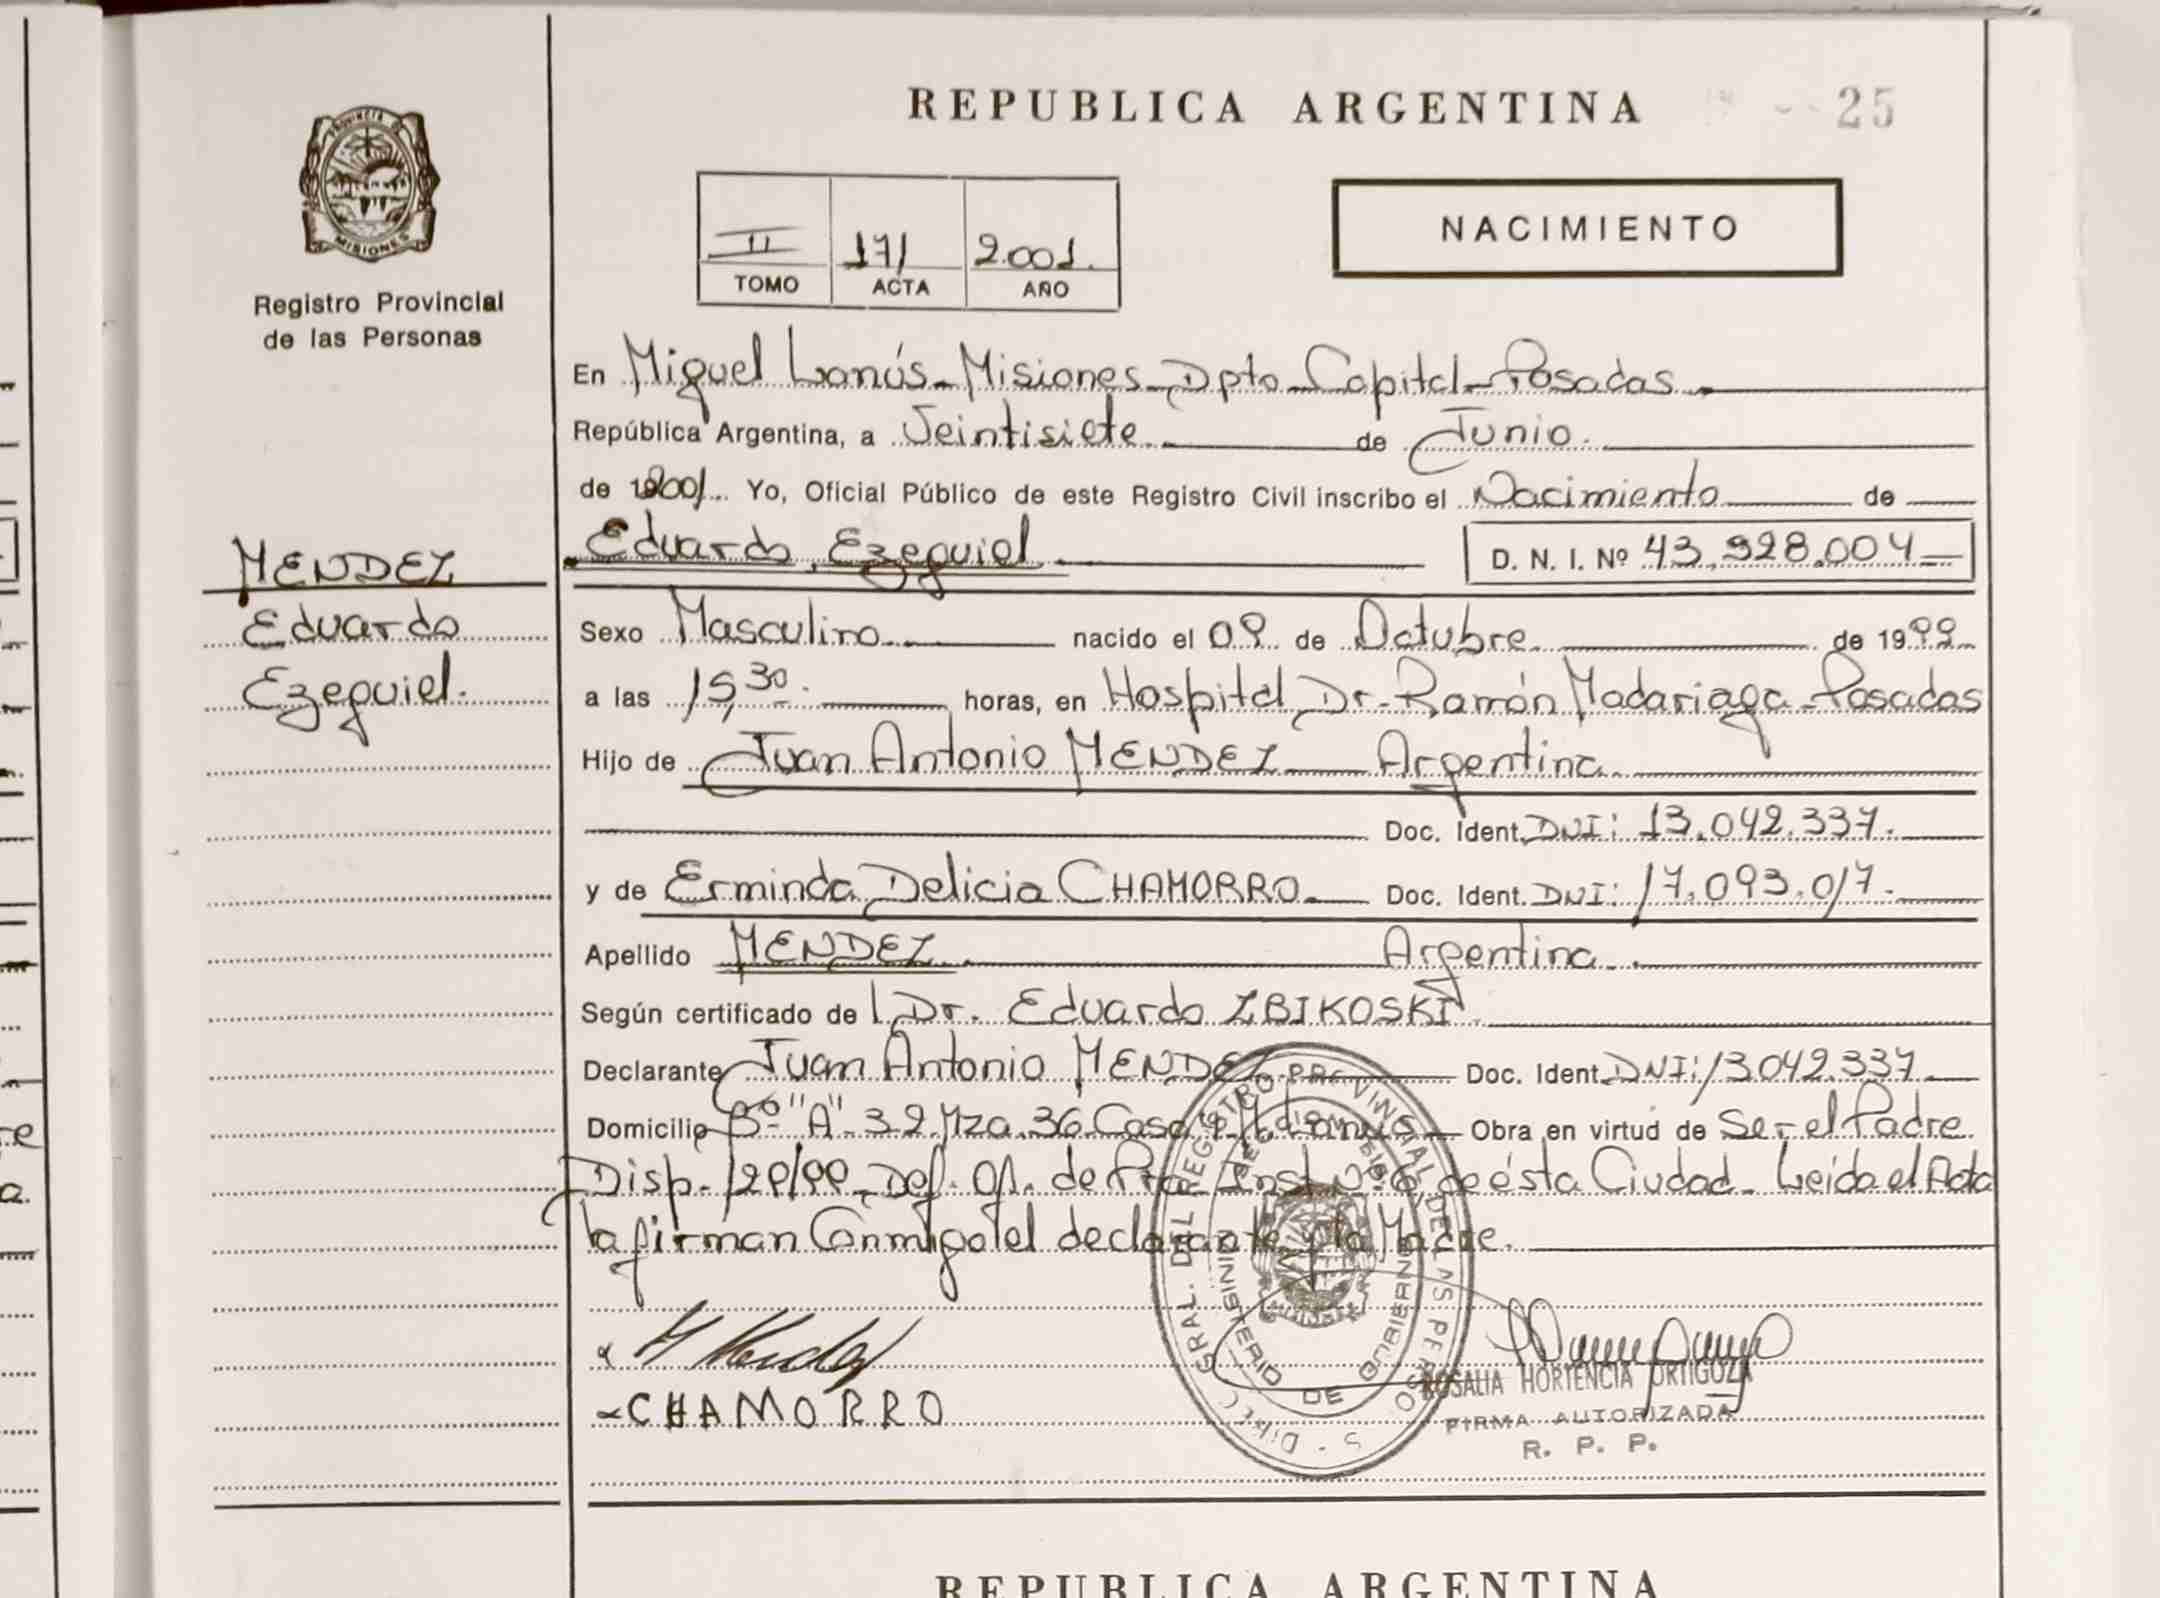 REPUBLICA ARGENTINA
25
PROVINCIA DE
MISIONES
Registro Provincial
de las Personas
II 171 2.001.
TOMO ACTA AÑO
NACIMIENTO
En Miguel Lanús - Misiones - Dpto - Capital - Posadas
República Argentina, a Veintisiete de Junio.
de 2001 Yo, Oficial Público de este Registro Civil inscribo el Nacimiento de
MENDEZ
Eduardo
Ezequiel.
Eduardo, Ezequiel D. N. I. Nº 43.928.004
Sexo Masculino nacido el 09 de Octubre de 1999
a las 15,30. horas, en Hospital Dr. Ramón Madariaga - Posadas
Hijo de Juan Antonio MENDEZ Argentina
Doc. Ident. DNI: 13.042.337.
y de Erminda Delicia CHAMORRO Doc. Ident. DNI: 17.093.017.
Apellido MENDEZ Argentina
Según certificado de l Dr. Eduardo ZBIKOSKI
Declarante Juan Antonio MENDEZ Doc. Ident. DNI: 13042.337.
Domicilio Bº "A" 3-2 Mza. 36 Casa Obra en virtud de Ser el Padre
Disp. 129/99 Def. Of. de Pra. Inst Nº 6 de ésta Ciudad - Leída el Acta
la firman Conmigo el declarante y la Madre.
CHAMORRO
DIREC GRAL. DEL REGISTRO PROVINCIAL DE LAS PERSONAS
MINISTERIO DE GOBIERNO
ROSALIA HORTENCIA ORTIGOZA
FIRMA AUTORIZADA
R. P. P.
REPUBLICA ARGENTINA